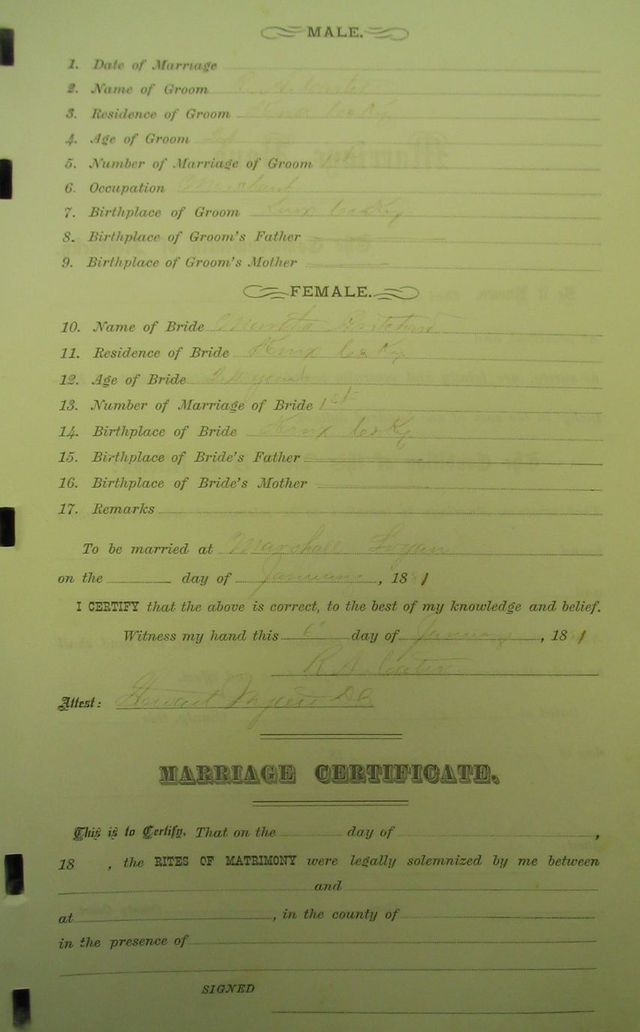 MALE.
1. Date of Marriage
2. Name of Groom
3. Residence of Groom Knox Co Ky
4. Age of Groom
5. Number of Marriage of Groom
6. Occupation Merchant
7. Birthplace of Groom Knox Co Ky
8. Birthplace of Groom's Father
9. Birthplace of Groom's Mother
FEMALE.
10. Name of Bride Martha
11. Residence of Bride Knox Co Ky
12. Age of Bride years
13. Number of Marriage of Bride 1st
14. Birthplace of Bride Knox Co Ky
15. Birthplace of Bride's Father
16. Birthplace of Bride's Mother
17. Remarks
To be married at Marshall Logan
on the day of January, 18 1
I CERTIFY that the above is correct, to the best of my knowledge and belief.
Witness my hand this 6 day of January, 18 1
R. A.
Attest: DC
MARRIAGE CERTIFICATE.
This is to Certify. That on the day of ,
18 , the RITES OF MATRIMONY were legally solemnized by me between
and
at , in the county of
in the presence of
SIGNED